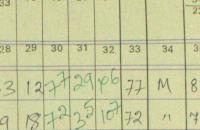 33
28 29 30 31 32 33 34 3
3 12 77 29 106 77 M 8
9 18 72 35 107 72 " 7